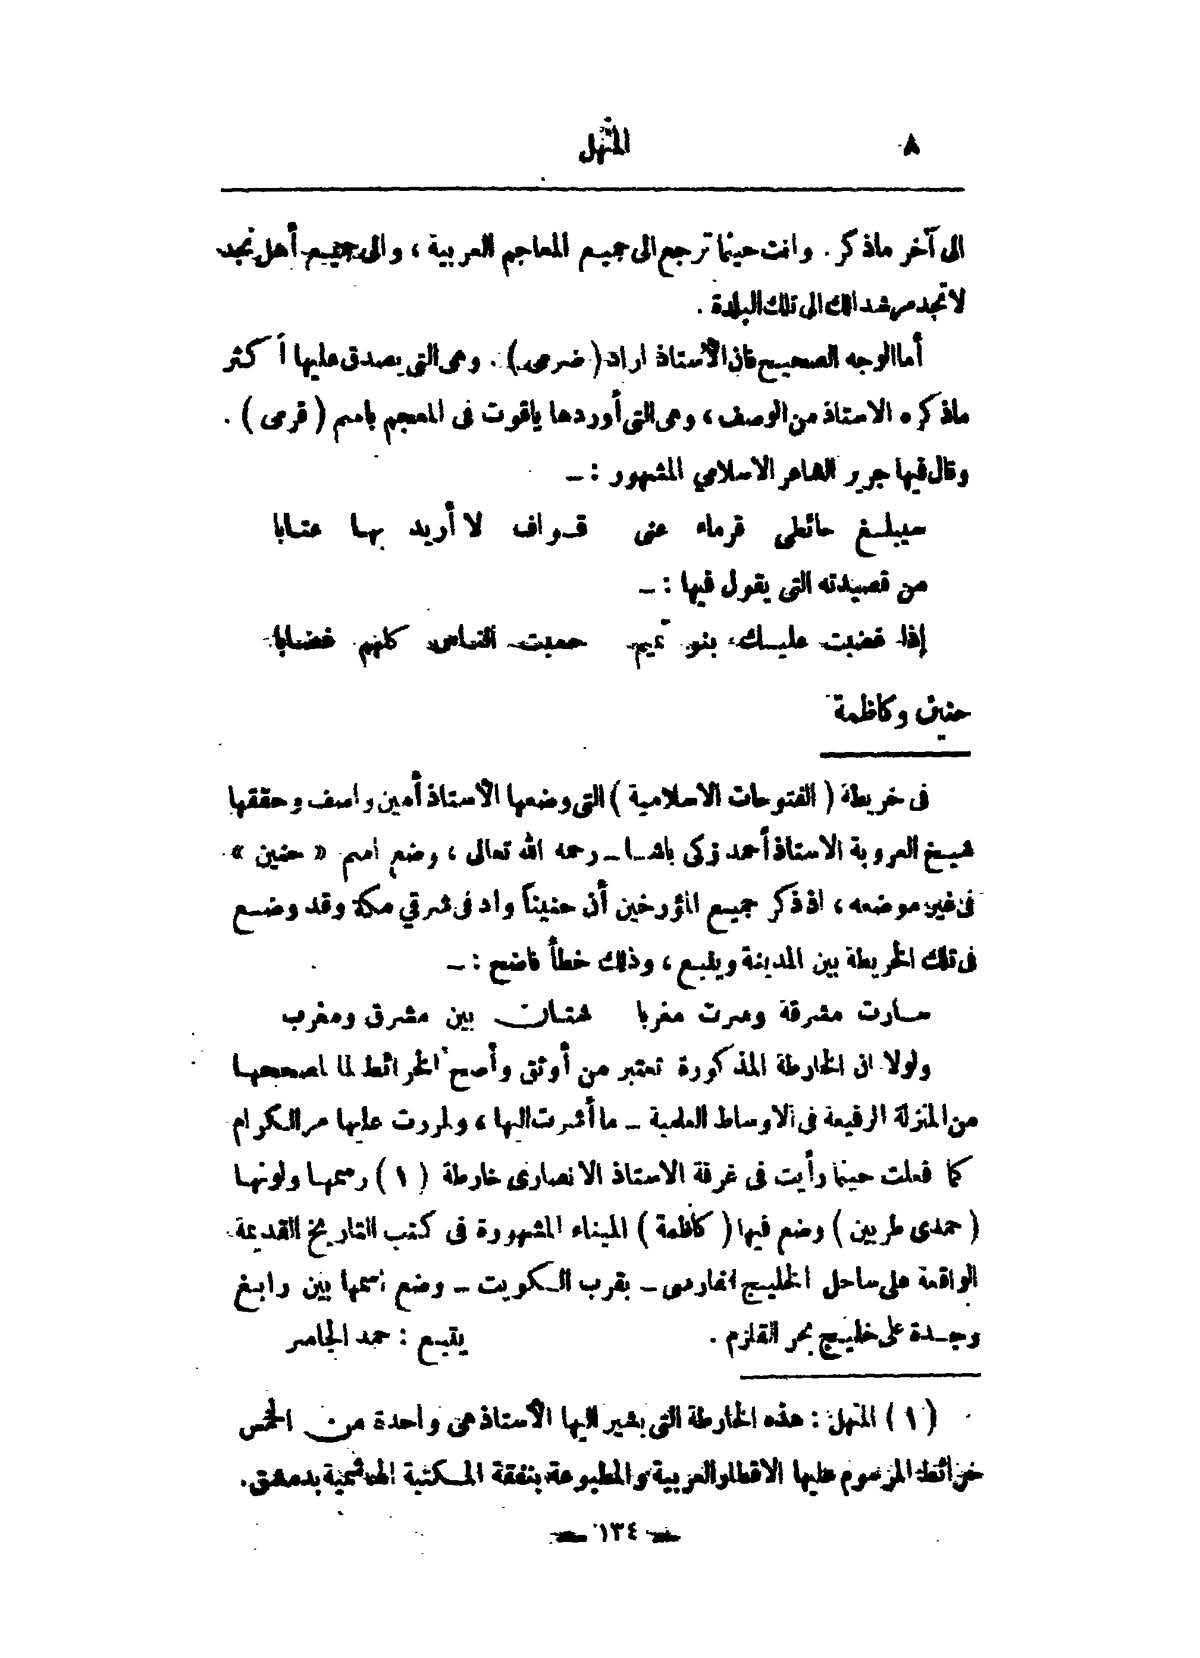 ٨
المنهل
الى آخر ماذكر . وانت حينما ترجع الى جميع المعاجم العربية ، والى جميع أهل نجد
لا تجد مرشدا لك الى تلك البلدة .
أما الوجه الصحيح فان الأستاذ اراد ( ضرمى ) . وهى التى يصدق عليها أكثر
ماذكره الاستاذ من الوصف ، وهى التى أوردها ياقوت فى المعجم باسم ( قرمى ) .
وقال فيها جرير الشاعر الاسلامي المشهور : ـ
سيبلغ حائطى قرماء عنى قواف لا أريد بها عتابا
من قصيدته التى يقول فيها : ـ
إذا غضبت عليك بنو تميم حسبت الناس كلهم غضابا
حنين وكاظمة
فى خريطة ( الفتوحات الاسلامية ) التى وضعها الأستاذ أمين واصف وحققها
شيخ العروبة الاستاذ أحمد زكى باشا ـ رحمه الله تعالى ، وضع اسم « حنين »
فى غير موضعه ، اذ ذكر جميع المؤرخين أن حنيناً واد فى شرقي مكة وقد وضع
فى تلك الخريطة بين المدينة وينبع ، وذلك خطأ فاضح : ـ
سارت مشرقة وسرت مغربا شتان بين مشرق ومغرب
ولولا ان الخارطة المذكورة تعتبر من أوثق وأصح الخرائط لما لمصححها
من المنزلة الرفيعة فى الاوساط العلمية ـ ما أشرت اليها ، ولمررت عليها مر الكرام
كما فعلت حينما رأيت فى غرفة الاستاذ الانصارى خارطة ( ١ ) رسمها ولونها
( حمدى طربين ) وضع فيها ( كاظمة ) الميناء المشهورة فى كتب التاريخ القديمة
الواقعة على ساحل الخليج الفارسى ـ بقرب الكويت ـ وضع اسمها بين رابغ
وجدة على خليج بحر القلزم .
يتبع : حمد الجاسر
( ١ ) المنهل : هذه الخارطة التى يشير اليها الأستاذ هى واحدة من الخمس
خرائط المرسوم عليها الاقطار العربية والمطبوعة بنفقة المكتبة الهاشمية بدمشق .
ـ ١٣٤ ـ